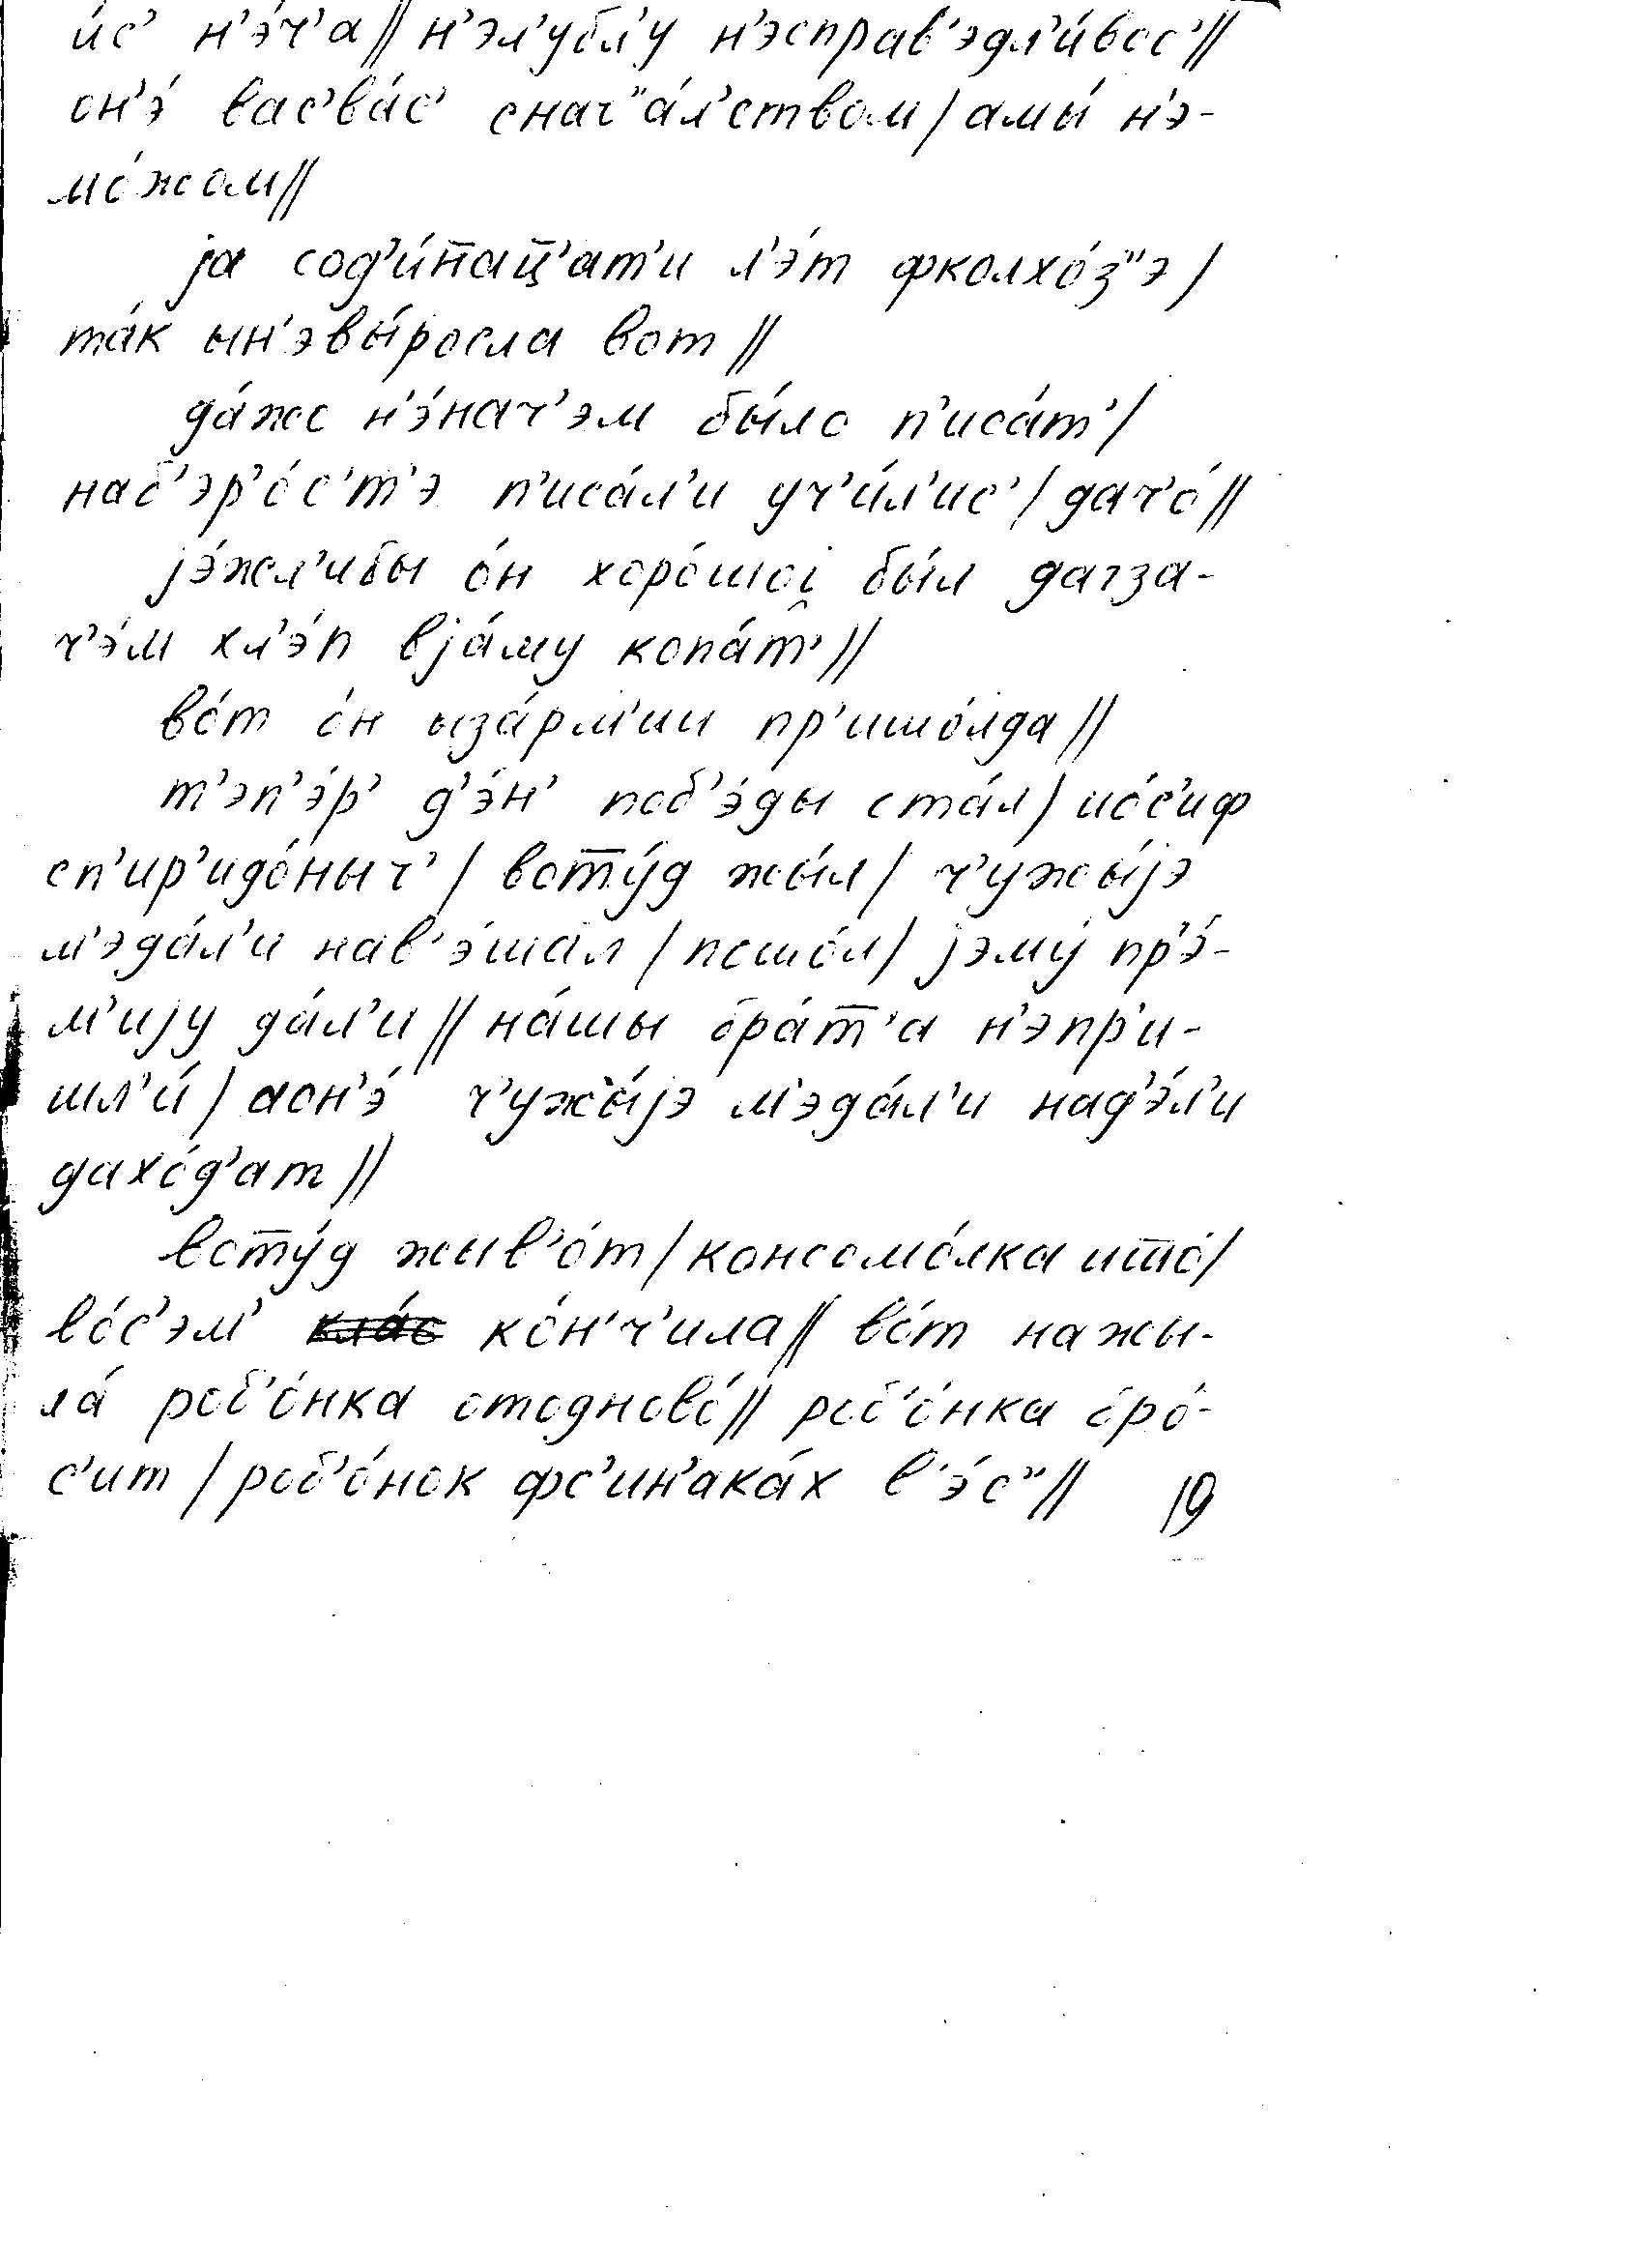 и́с’ н’э́ч’а// н’эл’убл’у н’эсправ’эдл’и́вос’//
он’э́ вас’ва́с’ снач"а́л’ством/ амы́ н’э-
мо́жом//
jа сод’и́н̄ац̄’ат’и л’э́т фколхо́з"э/
та́к ын’эвы́росла вот//
да́жо н’э́нач’эм бы́ло п’иса́т’/
наб’эр’о́с’т’э п’иса́л’и уч’и́л’ис’/ дач’о́//
jэ́жл’ибы о́н хоро́шоi̯ бы́л дагза-
ч’э́м хл’э́п вjа́му копа́т’//
во́т о́н ыза́рм’ии пр’ишо́лда//
т’эп’э́р’ д’э́н’ поб’э́ды ста́л/ ио́с’иф
сп’ир’идо́ныч’/ вот̄у́д жы́л/ ч’ужы́jэ
м’эда́л’и нав’э́шал/ пошо́л/ jэму́ пр’э́-
м’иjу да́л’и// на́шы бра́т̄’а н’эпр’и-
шл’и́/ аон’э́ ч’ужы́jэ м’эда́л’и над’э́л’и
дахо́д’ат//
вот̄у́д жыв’о́т/ консомо́лка ишт̄о́/
во́с’эм’ кла́с ко́н’ч’ила// во́т нажы-
ла́ роб’о́нка отодново́// роб’о́нка бро́-
с’ит/ роб’о́нок фс’ин’ака́х в’э́с"//
19